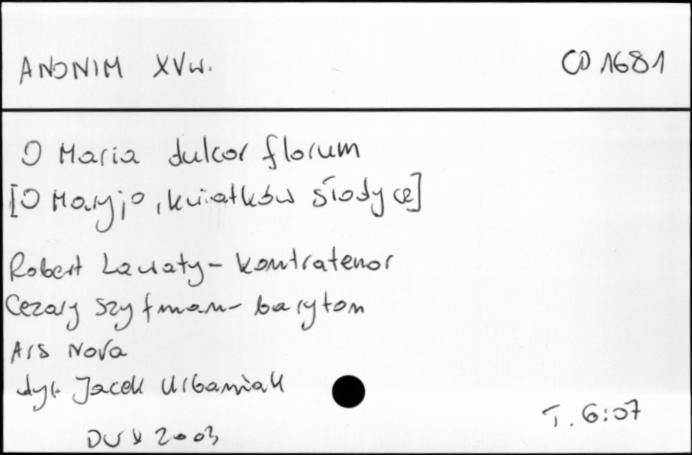 ANONIM XVw. CD 1681
O Maria dulcor florum
[O Maryjo, kwiatków słodyce]
Robert Lawaty - kontratenor
Cezary Szyfman - baryton
Ars Nova
dyr. Jacek Urbaniak
DUX 2003 T. 6:07